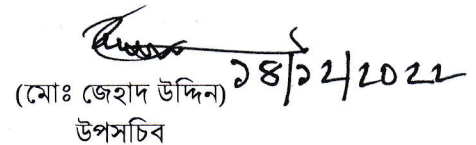 ১৪/১২/2022
(মোঃ জেহাদ উদ্দিন)
উপসচিব